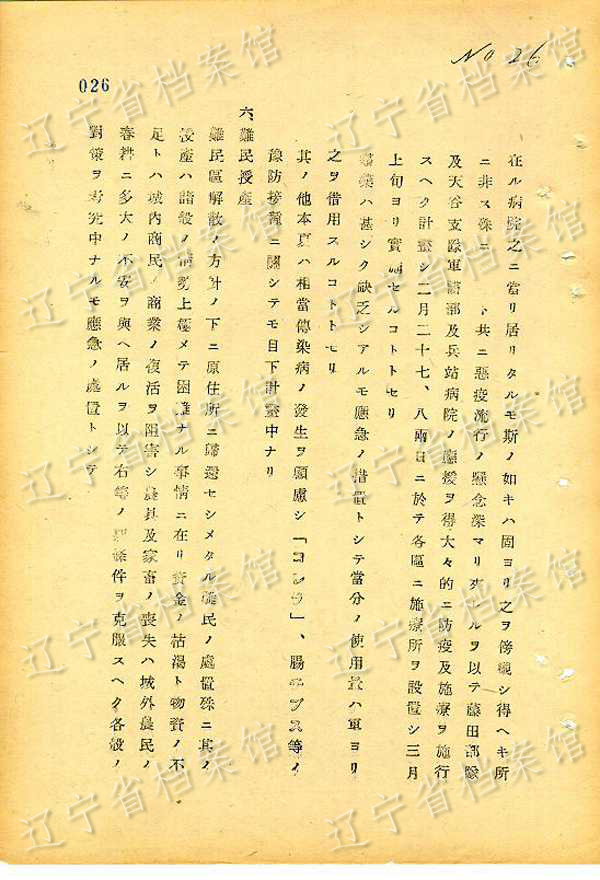 No 26
026
在ル病院之ニ當リ居リタルモ斯ノ如キハ固ヨリ之ヲ傍観シ得ヘキ所
ニ非ス殊ニ ト共ニ惡疫流行ノ懸念深マリ タルヲ以テ藤田部隊
及天谷支隊軍醫部及兵站病院ノ應援ヲ得大々的ニ防疫及施療ヲ施行
スヘク計畫シ二月二十七、八兩日ニ於テ各區ニ施療所ヲ設置シ三月
上旬ヨリ實施セルコトトセリ
藥ハ甚シク缺乏シアルモ應急ノ措置トシテ當分ノ使用量ハ軍ヨリ
之ヲ借用スルコトトセリ
其ノ他本夏ハ相當傳染病ノ發生ヲ顧慮シ「コレラ」、腸チブス等ノ
豫防接種ニ關シテモ目下計畫中ナリ
六、難民授産
難民區解散ノ方針ノ下ニ原住所ニ歸還セシメタル難民ノ處置殊ニ其ノ
授産ハ諸般ノ情勢上極メテ困難ナル事情ニ在リ資金ノ枯渇ト物資ノ不
足トハ城内商民ノ商業ノ復活ヲ阻害シ農具及家畜ノ喪失ハ城外農民ノ
春耕ニ多大ノ不安ヲ與ヘ居ルヲ以テ右等ノ 條件ヲ克服スヘク各般ノ
對策ヲ考究中ナルモ應急ノ處置トシテ
辽宁省档案馆
辽宁省档案馆
辽宁省档案馆
辽宁省档案馆
辽宁省档案馆
辽宁省档案馆
辽宁省档案馆
辽宁省档案馆
辽宁省档案馆
辽宁省档案馆